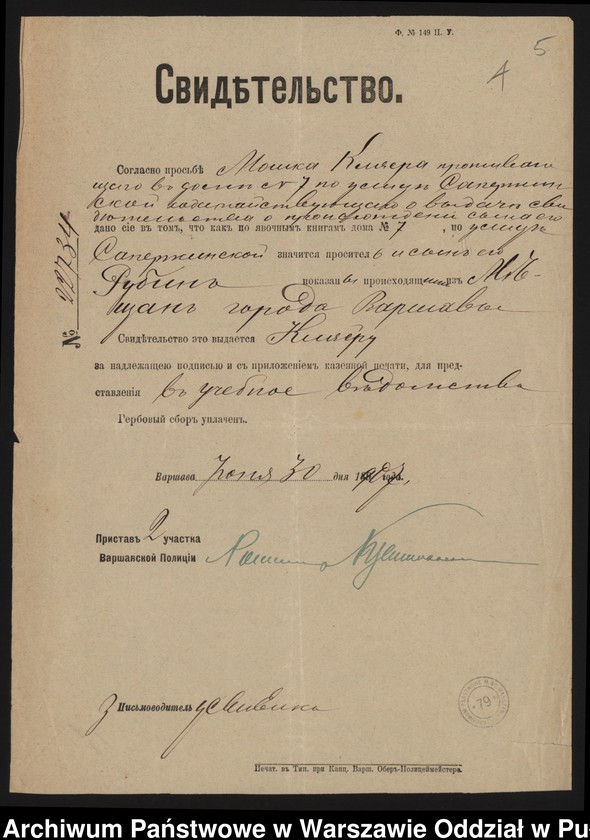 Ф. № 149 П. У.
5
4
Свидѣтельство.
Согласно просьбѣ Мошка Клигера проживаю
щаго въ домѣ № 7 по улицѣ Сапержин
ской ходатайствующаго о выдачѣ сви
дѣтельства о происхожденіи сына его
дано сіе въ томъ, что какъ по явочнымъ книгамъ дома № 7, по улицѣ
Сапержинской значится проситель и сынъ его
Рубинъ показаны происходящими изъ Мѣ-
щанъ города Варшавы
№ 22734
Свидѣтельство это выдается Клигеру
за надлежащею подписью и съ приложеніемъ казенной печати, для пред-
ставленія въ учебное вѣдомство
Гербовый сборъ уплаченъ.
Варшава Іюня 30 дня года.
Приставъ 2 участка
Варшавской Полиціи
Письмоводитель
79
Печат. въ Тип. при Канц. Варш. Оберъ-Полицеймейстера.
Archiwum Państwowe w Warszawie Oddział w Pu